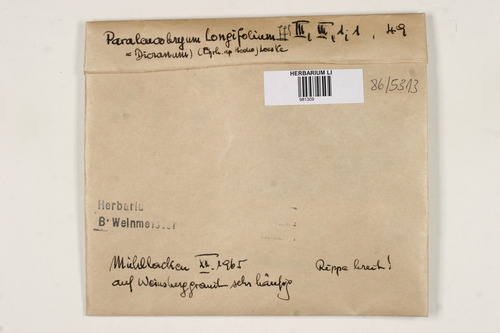 Paraleucobryum Longifolium III, III, 1; 1, 49
= Dicranum) (Ehrh. ap Hedw.) Loeske
HERBARIUM LI
981309
86/5313
Herbariu
B. Weinmeister
Mühllacken XII. 1965 Rippe breit!
auf Weinsberggranit sehr häufig